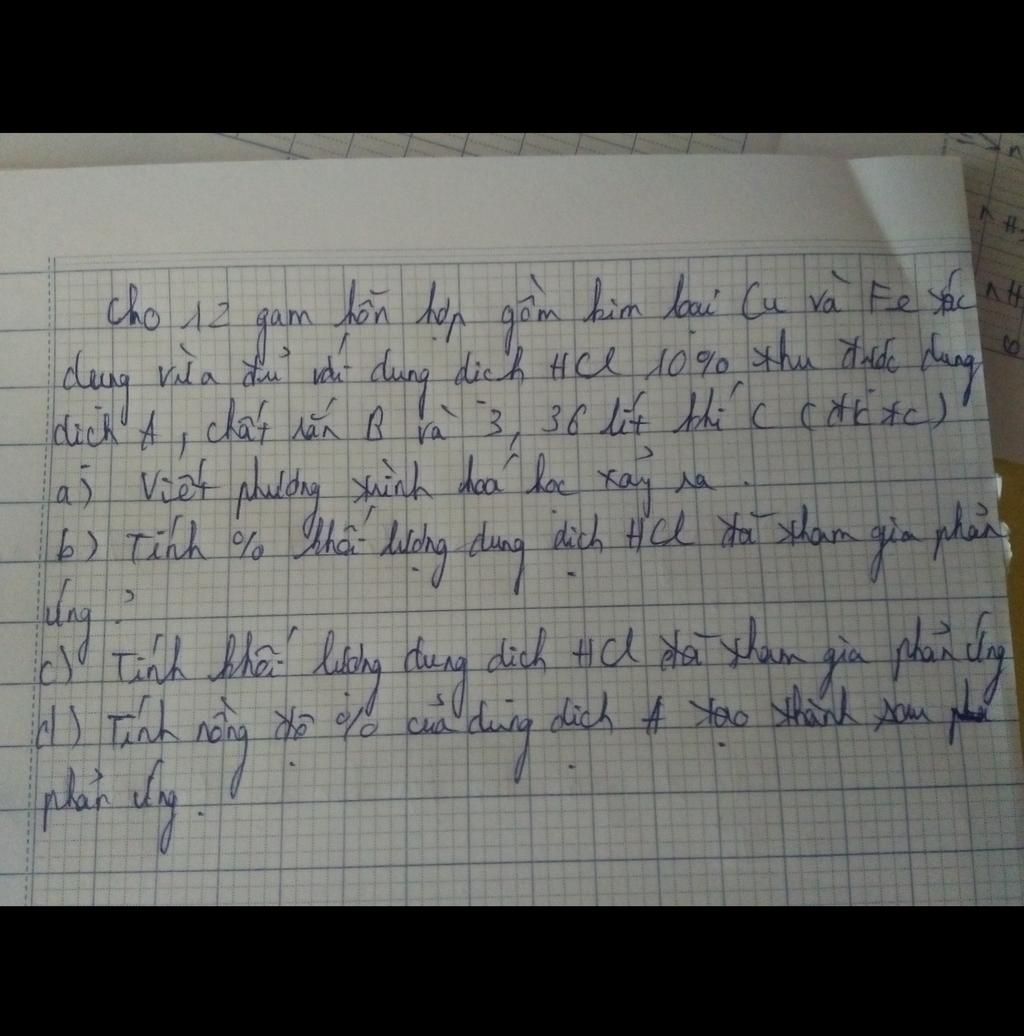 Cho 12 gam hỗn hợp gồm kim loại Cu và Fe tác
dụng vừa đủ với dung dịch HCl 10% thu được dung
dịch A, chất rắn B và 3,36 lít khí C (đktc)
a) Viết phương trình hoá học xảy ra.
b) Tính % khối lượng dung dịch HCl đã tham gia phản
ứng?
c) Tính khối lượng dung dịch HCl đã tham gia phản ứng
d) Tính nồng độ % của dung dịch A tạo thành sau
phản ứng.